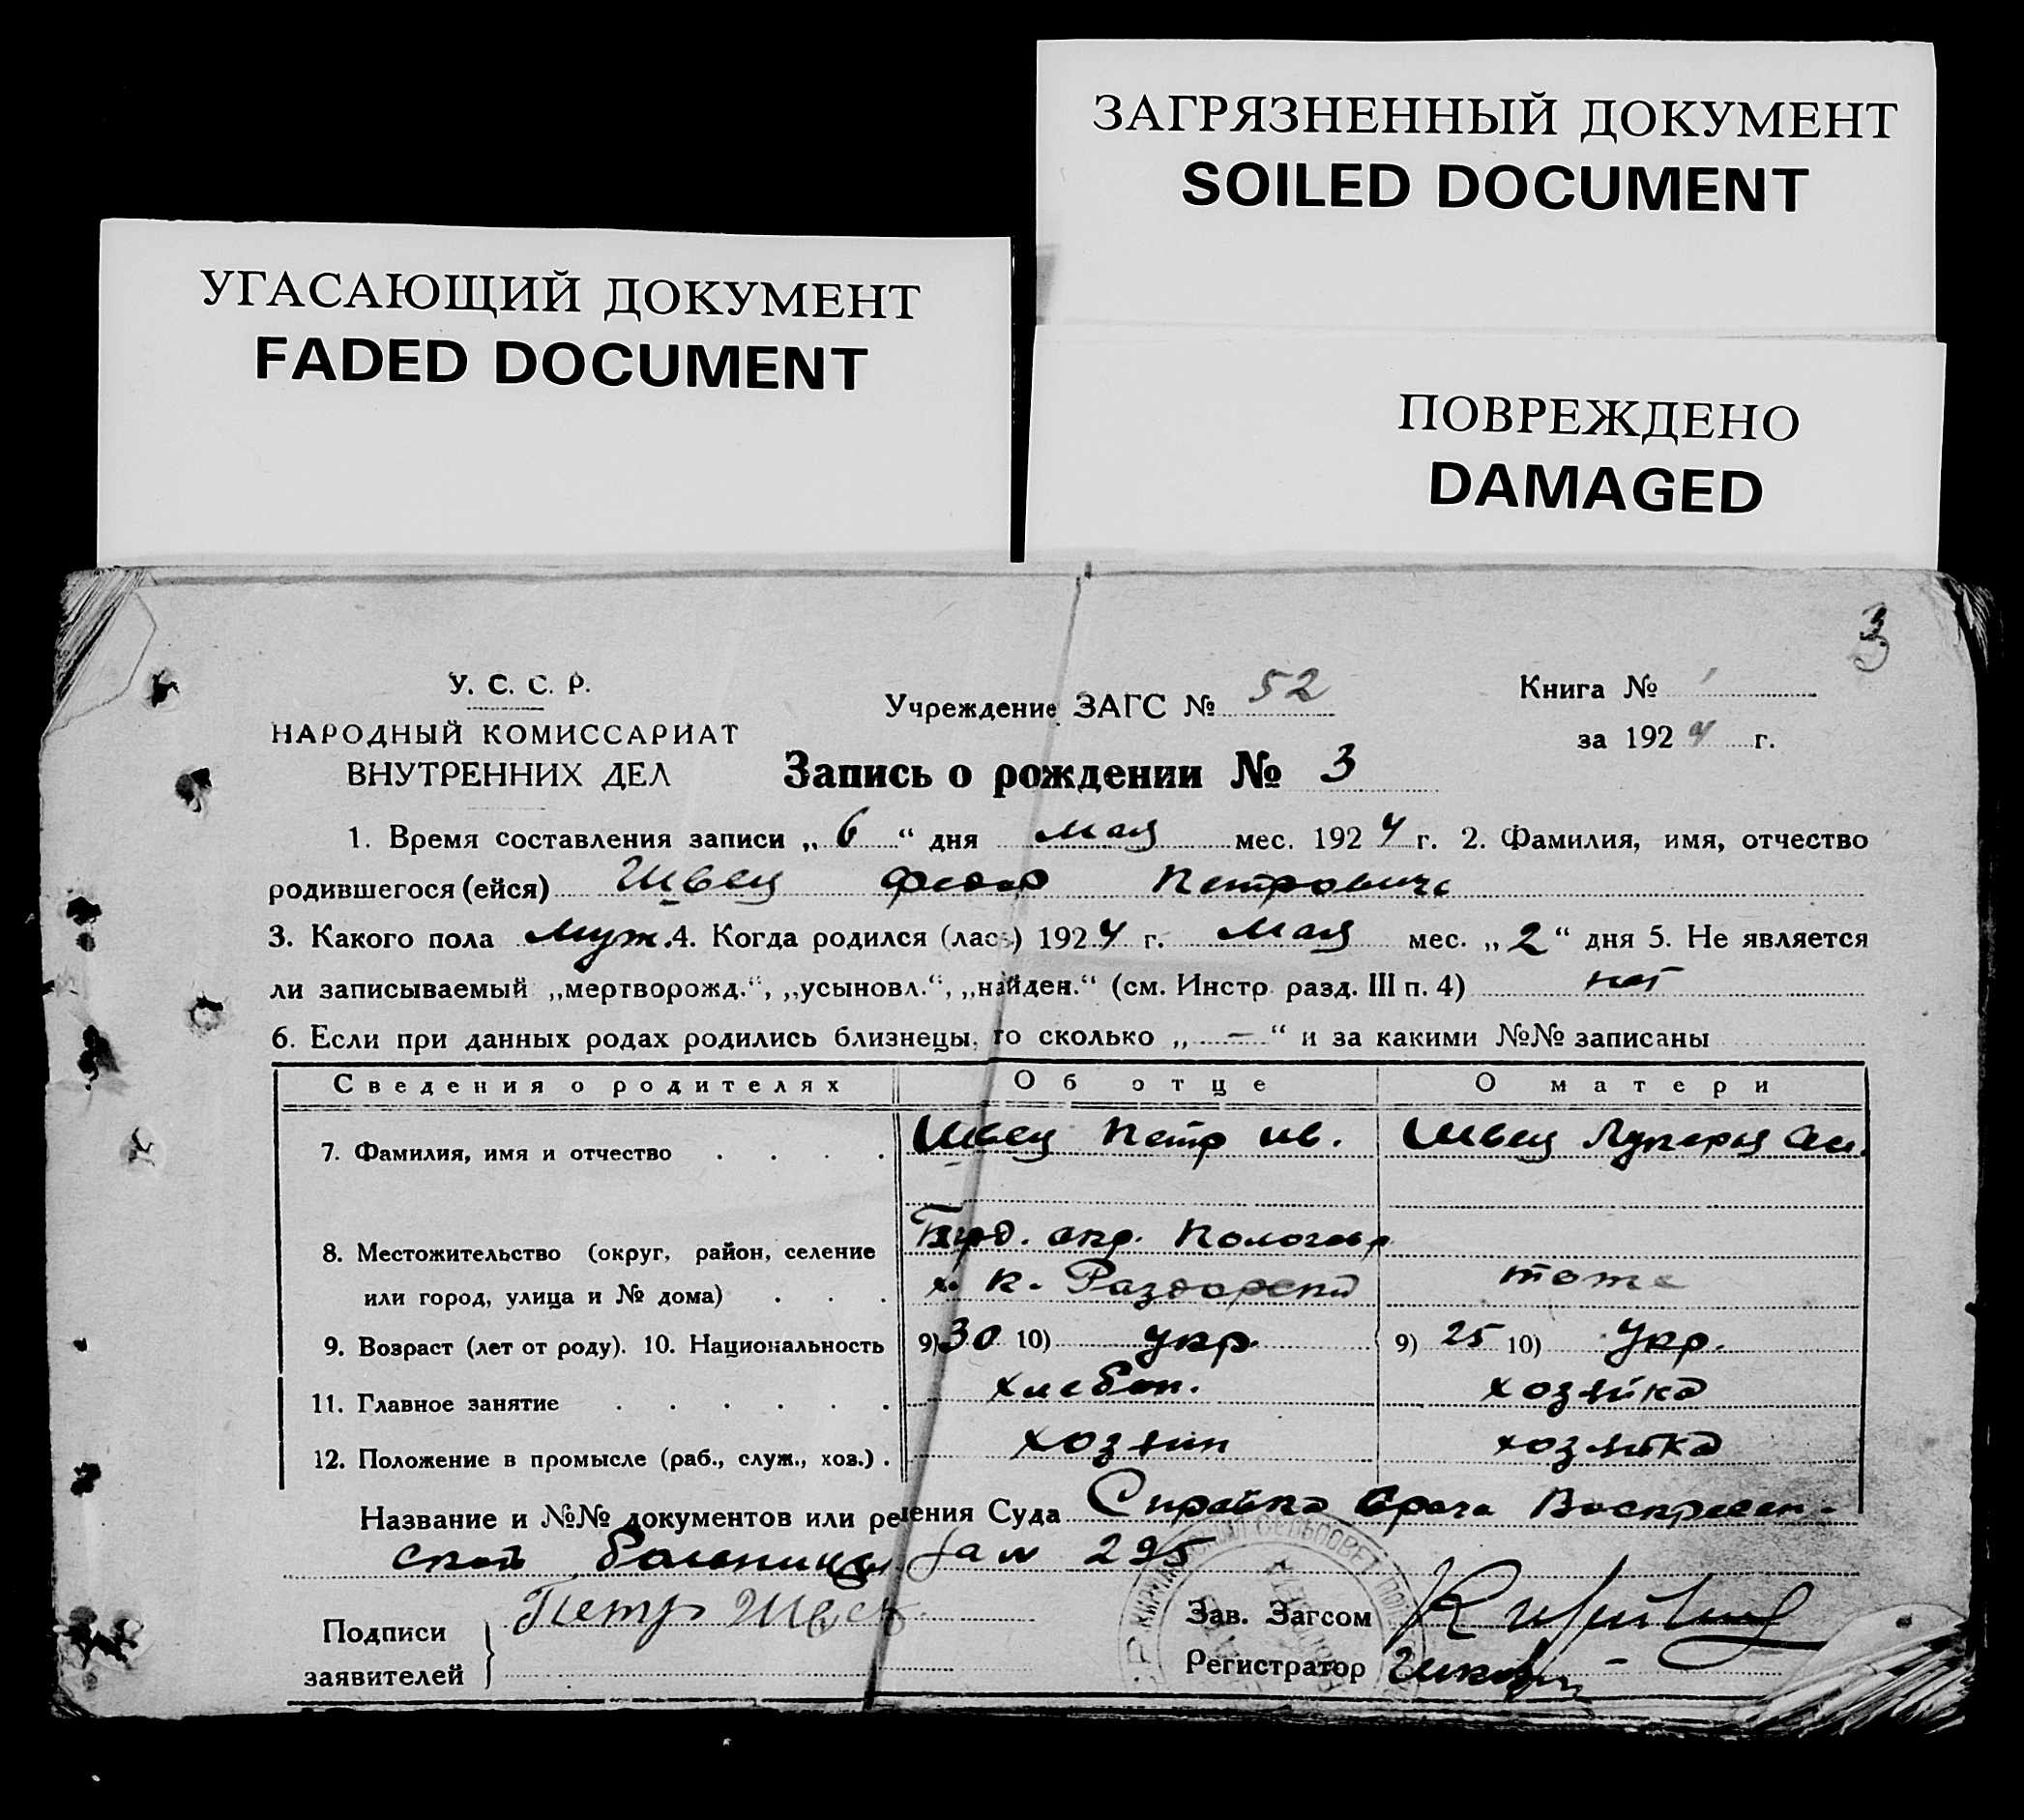 ЗАГРЯЗНЕННЫЙ ДОКУМЕНТ
SOILED DOCUMENT
УГАСАЮЩИЙ ДОКУМЕНТ
FADED DOCUMENT
ПОВРЕЖДЕНО
DAMAGED
3
У. С. С. Р.
НАРОДНЫЙ КОМИССАРИАТ
ВНУТРЕННИХ ДЕЛ
Учреждение ЗАГС № 52
Книга № 1
за 1924 г.
Запись о рождении № 3
1. Время составления записи „6“ дня мая мес. 1924 г. 2. Фамилия, имя, отчество
родившегося (ейся) Швец Федор Петровичь
3. Какого пола муж. 4. Когда родился (лась) 1924 г. Мая мес. „2“ дня 5. Не является
ли записываемый „мертворожд.“, „усыновл.“, „найден.“ (см. Инстр. разд. III п. 4) нет
6. Если при данных родах родились близнецы, то сколько „—“ и за какими №№ записаны
Сведения о родителях Об отце О матери
7. Фамилия, имя и отчество . . . . Швец Петр Ив. Швец Лукерья
8. Местожительство (округ, район, селение окр. Пологовр
или город, улица и № дома) . . . х. К. Раздорский тоже
9. Возраст (лет от роду). 10. Национальность 9) 30 10) укр. 9) 25 10) Укр.
11. Главное занятие . . . . . . хлебоп. хозяйка
12. Положение в промысле (раб., служ., хоз.) . хозяин хозяйка
Название и №№ документов или решения Суда Справка врача Воскресен-
ской больницы за № 295
Подписи
заявителей
Петр Швец
Зав. Загсом
Регистратор